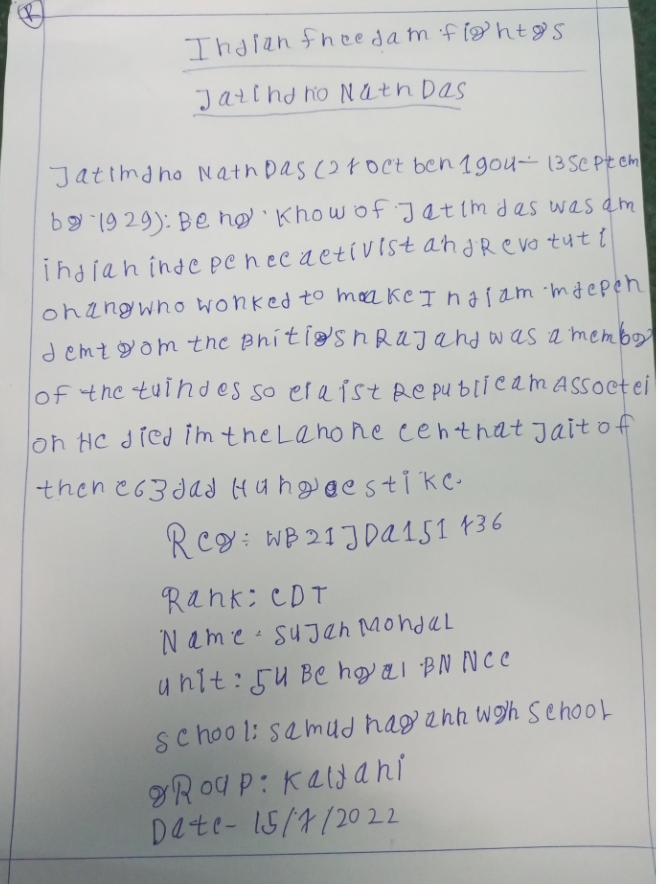 R
Indian freedam fightgs
Jatindho Nath Das
Jatimdho Nath Das (27 oct ben 1904- 13 Septem
bg 1929): Beng Know of Jatim das was am
indian indepenec activist and Revo tuti
onang who wonked to make Indiam indepen
demt gom the Bhitigsh Raj and was a membg
of the tuindes so cia ist Republicam Assoctei
on He died im the Lahone centhat Jait of
then e 63 dad Hungge stike.
Reg: WB21JDA151736
Rank: CDT
Name: Sujan Mondal
unit: 54 Bengal BN NCC
school: samudhagahh wgh School
gRoup: Kalyani
Date- 15/7/2022